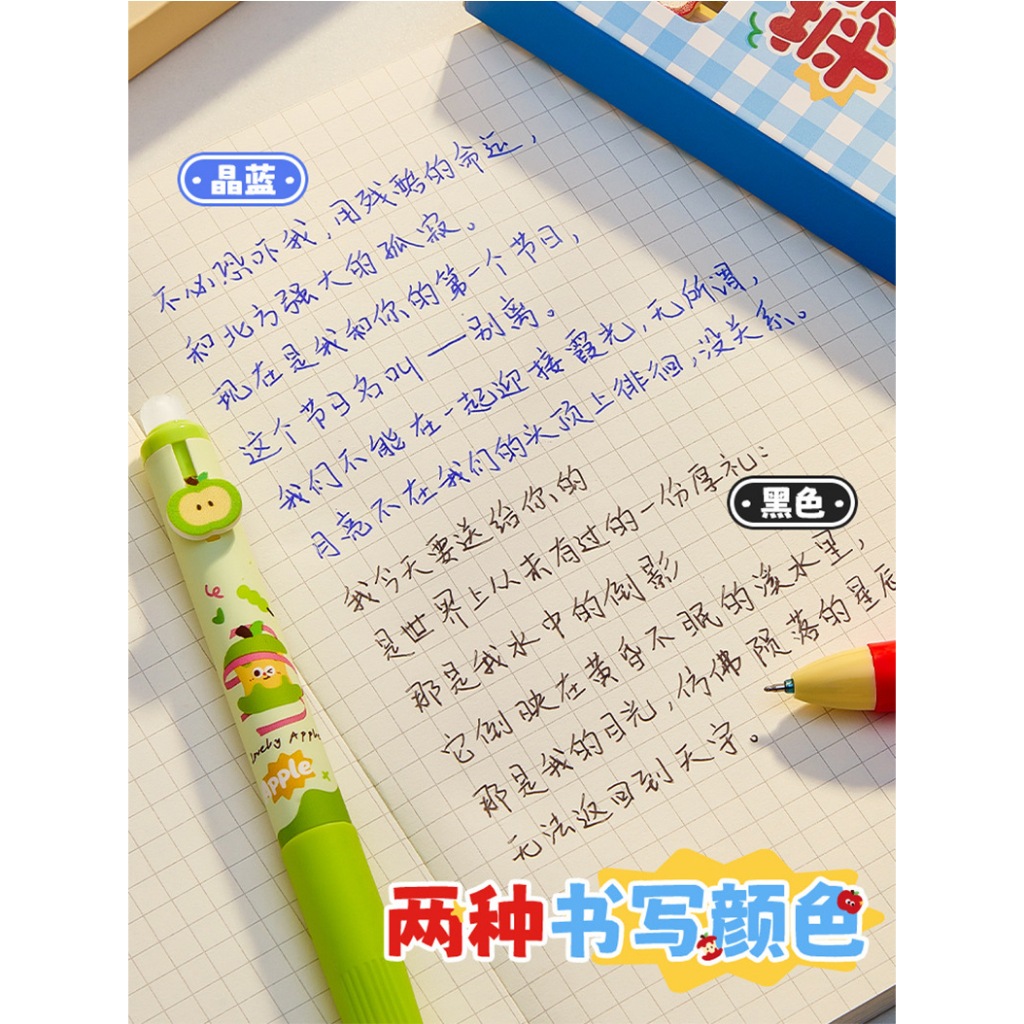 晶蓝
不必恐吓我,用残酷的命运,
和北方强大的孤寂。
现在是我和你的第一个节日,
这个节日名叫一别离。
我们不能在一起迎接霞光,无所谓,
月亮不在我们的头顶上徘徊,没关系。
黑色
我今天要送给你的
是世界上从未有过的一份厚礼:
那是我水中的倒影
它倒映在黄昏不眠的溪水里,
那是我的目光,仿佛陨落的星辰
无法返回到天宇。
Lovely Apple
pple
两种书写颜色